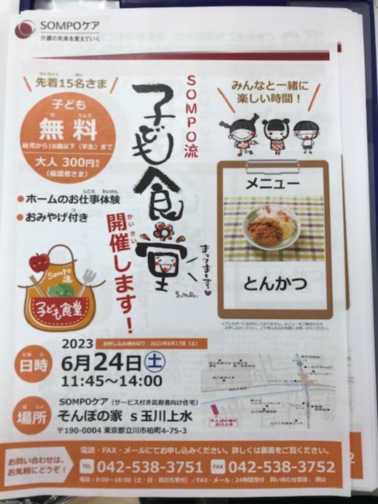 SOMPOケア
介護の未来を変えていく
先着15名さま
子ども
無料
幼児から18歳以下(学生)まで
大人 300円
(保護者さま)
ホームのお仕事体験
おみやげ付き
SOMPO流
子ども食堂
開催します!
まってまーす
みんなと一緒に
楽しい時間!
メニュー
とんかつ
SOMPO流
子ども食堂
2023
お申し込み締め切り:2023年6月17日(土)
日時
6月24日(土)
11:45〜14:00
場所
SOMPOケア(サービス付き高齢者向け住宅)
そんぽの家 s 玉川上水
〒190-0004 東京都立川市柏町4-75-3
お問い合わせは、
お気軽にどうぞ!
電話・FAX・メールにてお申し込みください。詳しくは裏面をご覧ください。
TEL 042-538-3751
FAX 042-538-3752